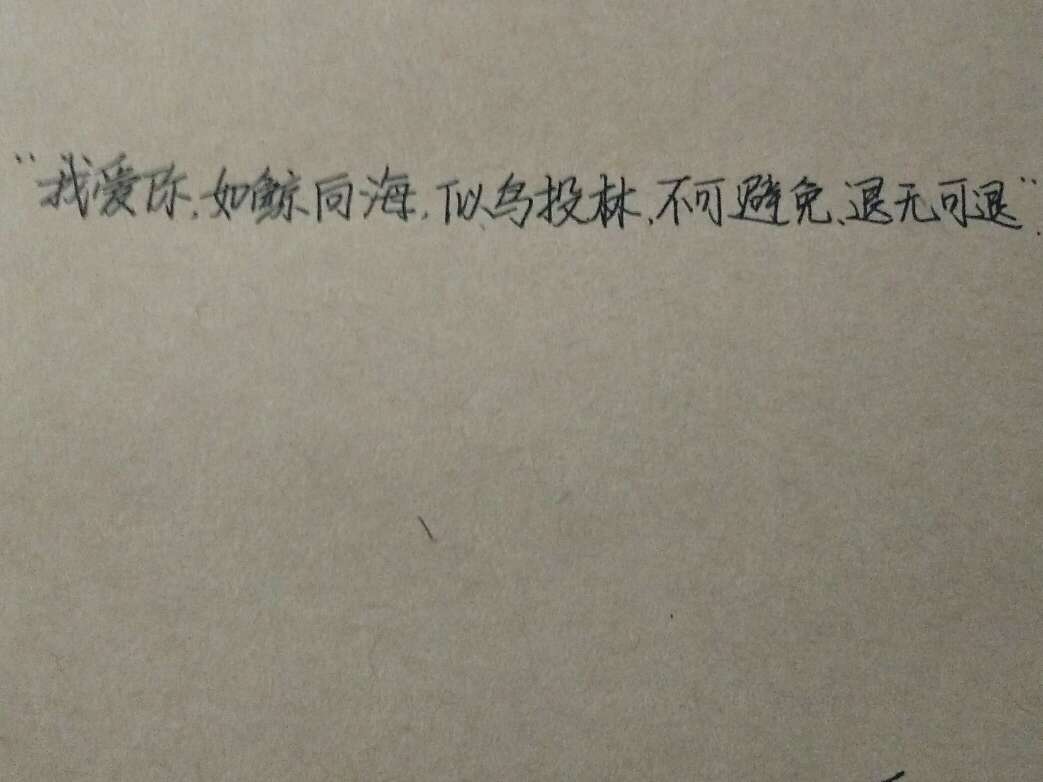 "我爱你,如鲸向海,似鸟投林,不可避免,退无可退".